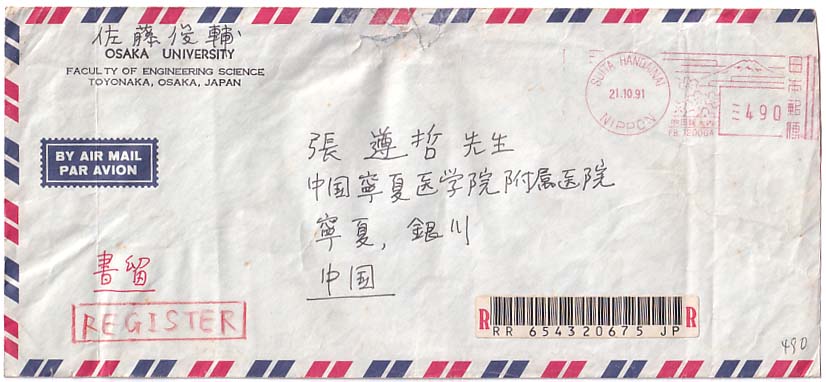 佐藤俊輔
OSAKA UNIVERSITY
FACULTY OF ENGINEERING SCIENCE
TOYONAKA, OSAKA, JAPAN
SUITA HANDAINAI
21.10.91
NIPPON
490
日本郵便
BY AIR MAIL
PAR AVION
張遵哲先生
中国寧夏医学院附属医院
寧夏,銀川
中国
書留
REGISTER
R R
RR 654320675 JP
490